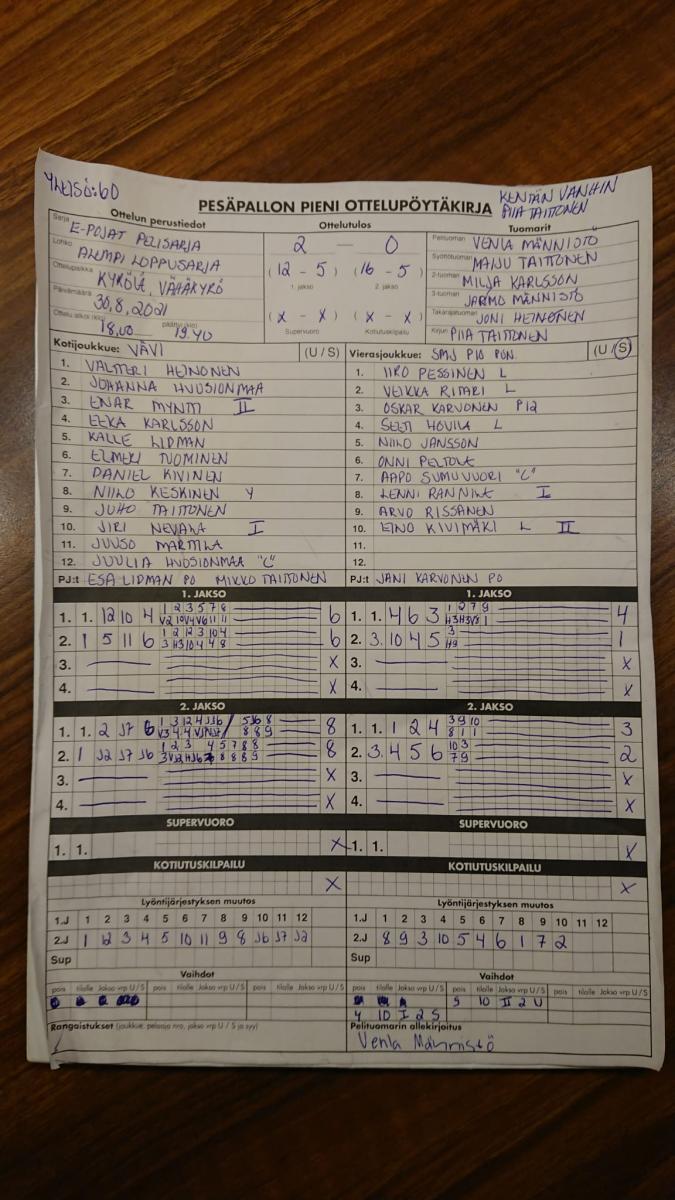 Yleisö: 60
PESÄPALLON PIENI OTTELUPÖYTÄKIRJA
KENTÄN VANHIN
PIIA TAITTONEN
Ottelun perustiedot
Ottelutulos
Tuomarit
Sarja E-POJAT PELISARJA
Lohko ALEMPI LOPPUSARJA
Ottelupaikka KYRÖLÄ, VÄHÄKYRÖ
Päivämäärä 30.8.2021
Ottelu alkoi (klo) 18.00 päättyi (klo) 19.40
2 — 0
(12 - 5) (16 - 5)
1. jakso 2. jakso
(x - x) (x - x)
Supervuoro Kotiutuskilpailu
Pelituomari VENLA MÄNNISTÖ
Syöttötuomari MAIJU TAITTONEN
2-tuomari MILJA KARLSSON
3-tuomari JARMO MÄNNISTÖ
Takarajatuomari JONI HEINONEN
Kirjuri PIIA TAITTONEN
Kotijoukkue: VÄVI (U / S)
1. VALTTERI HEINONEN
2. JOHANNA HUUSIONMAA
3. EINAR MYNTTI II
4. EEKA KARLSSON
5. KALLE LIDMAN
6. ELMERI TUOMINEN
7. DANIEL KIVINEN
8. NIILO KESKINEN Y
9. JUHO TAITTONEN
10. JIRI NEVALA I
11. JUUSO MARTTILA
12. JUULIA HUUSIONMAA "C"
PJ:t ESA LIDMAN PO MIKKO TAITTONEN
Vierasjoukkue: SMJ P10 PUN. (U / S)
1. IIRO PESSINEN L
2. VEIKKA RITARI L
3. OSKAR KARVONEN P12
4. SEETI HOVILA L
5. NIILO JANSSON
6. ONNI PELTOLA
7. AAPO SUMUVUORI "C"
8. LENNI RANNILA I
9. ARVO RISSANEN
10. EINO KIVIMÄKI L II
11.
12.
PJ:t JANI KARVONEN PO
1. JAKSO
1. 1. 12 10 4 1 2 3 5 7 8 6
2. 1 5 11 6 1 2 12 3 10 4 6
3 H3 10 4 4 8
3. X
4. X
1. JAKSO
1. 1. 4 6 3 1 2 7 9 4
2. 3. 10 4 5 3 1
H9
3. X
4. X
2. JAKSO
1. 1. 2 J7 6 8
2. 1 J2 J7 J6 8
3. X
4. X
2. JAKSO
1. 1. 1 2 4 3 9 10 3
8 1 1
2. 3. 4 5 6 10 3 2
7 9
3. X
4. X
SUPERVUORO
1. 1. X
SUPERVUORO
1. 1. X
KOTIUTUSKILPAILU
X
KOTIUTUSKILPAILU
X
Lyöntijärjestyksen muutos
1.J 1 2 3 4 5 6 7 8 9 10 11 12
2.J 1 12 3 4 5 10 11 9 8 J6 J7 J2
Sup
Lyöntijärjestyksen muutos
1.J 1 2 3 4 5 6 7 8 9 10 11 12
2.J 8 9 3 10 5 4 6 1 7 2
Sup
Vaihdot
pois tilalle Jakso vrp U / S pois tilalle Jakso vrp U / S pois tilalle Jakso vrp U / S
Vaihdot
pois tilalle Jakso vrp U / S pois tilalle Jakso vrp U / S pois tilalle Jakso vrp U / S
5 10 II 2 U
4 10 I 2 S
Rangaistukset (joukkue, pelaaja nro, jakso vrp U / S ja syy)
Pelituomarin allekirjoitus
Venla Männistö